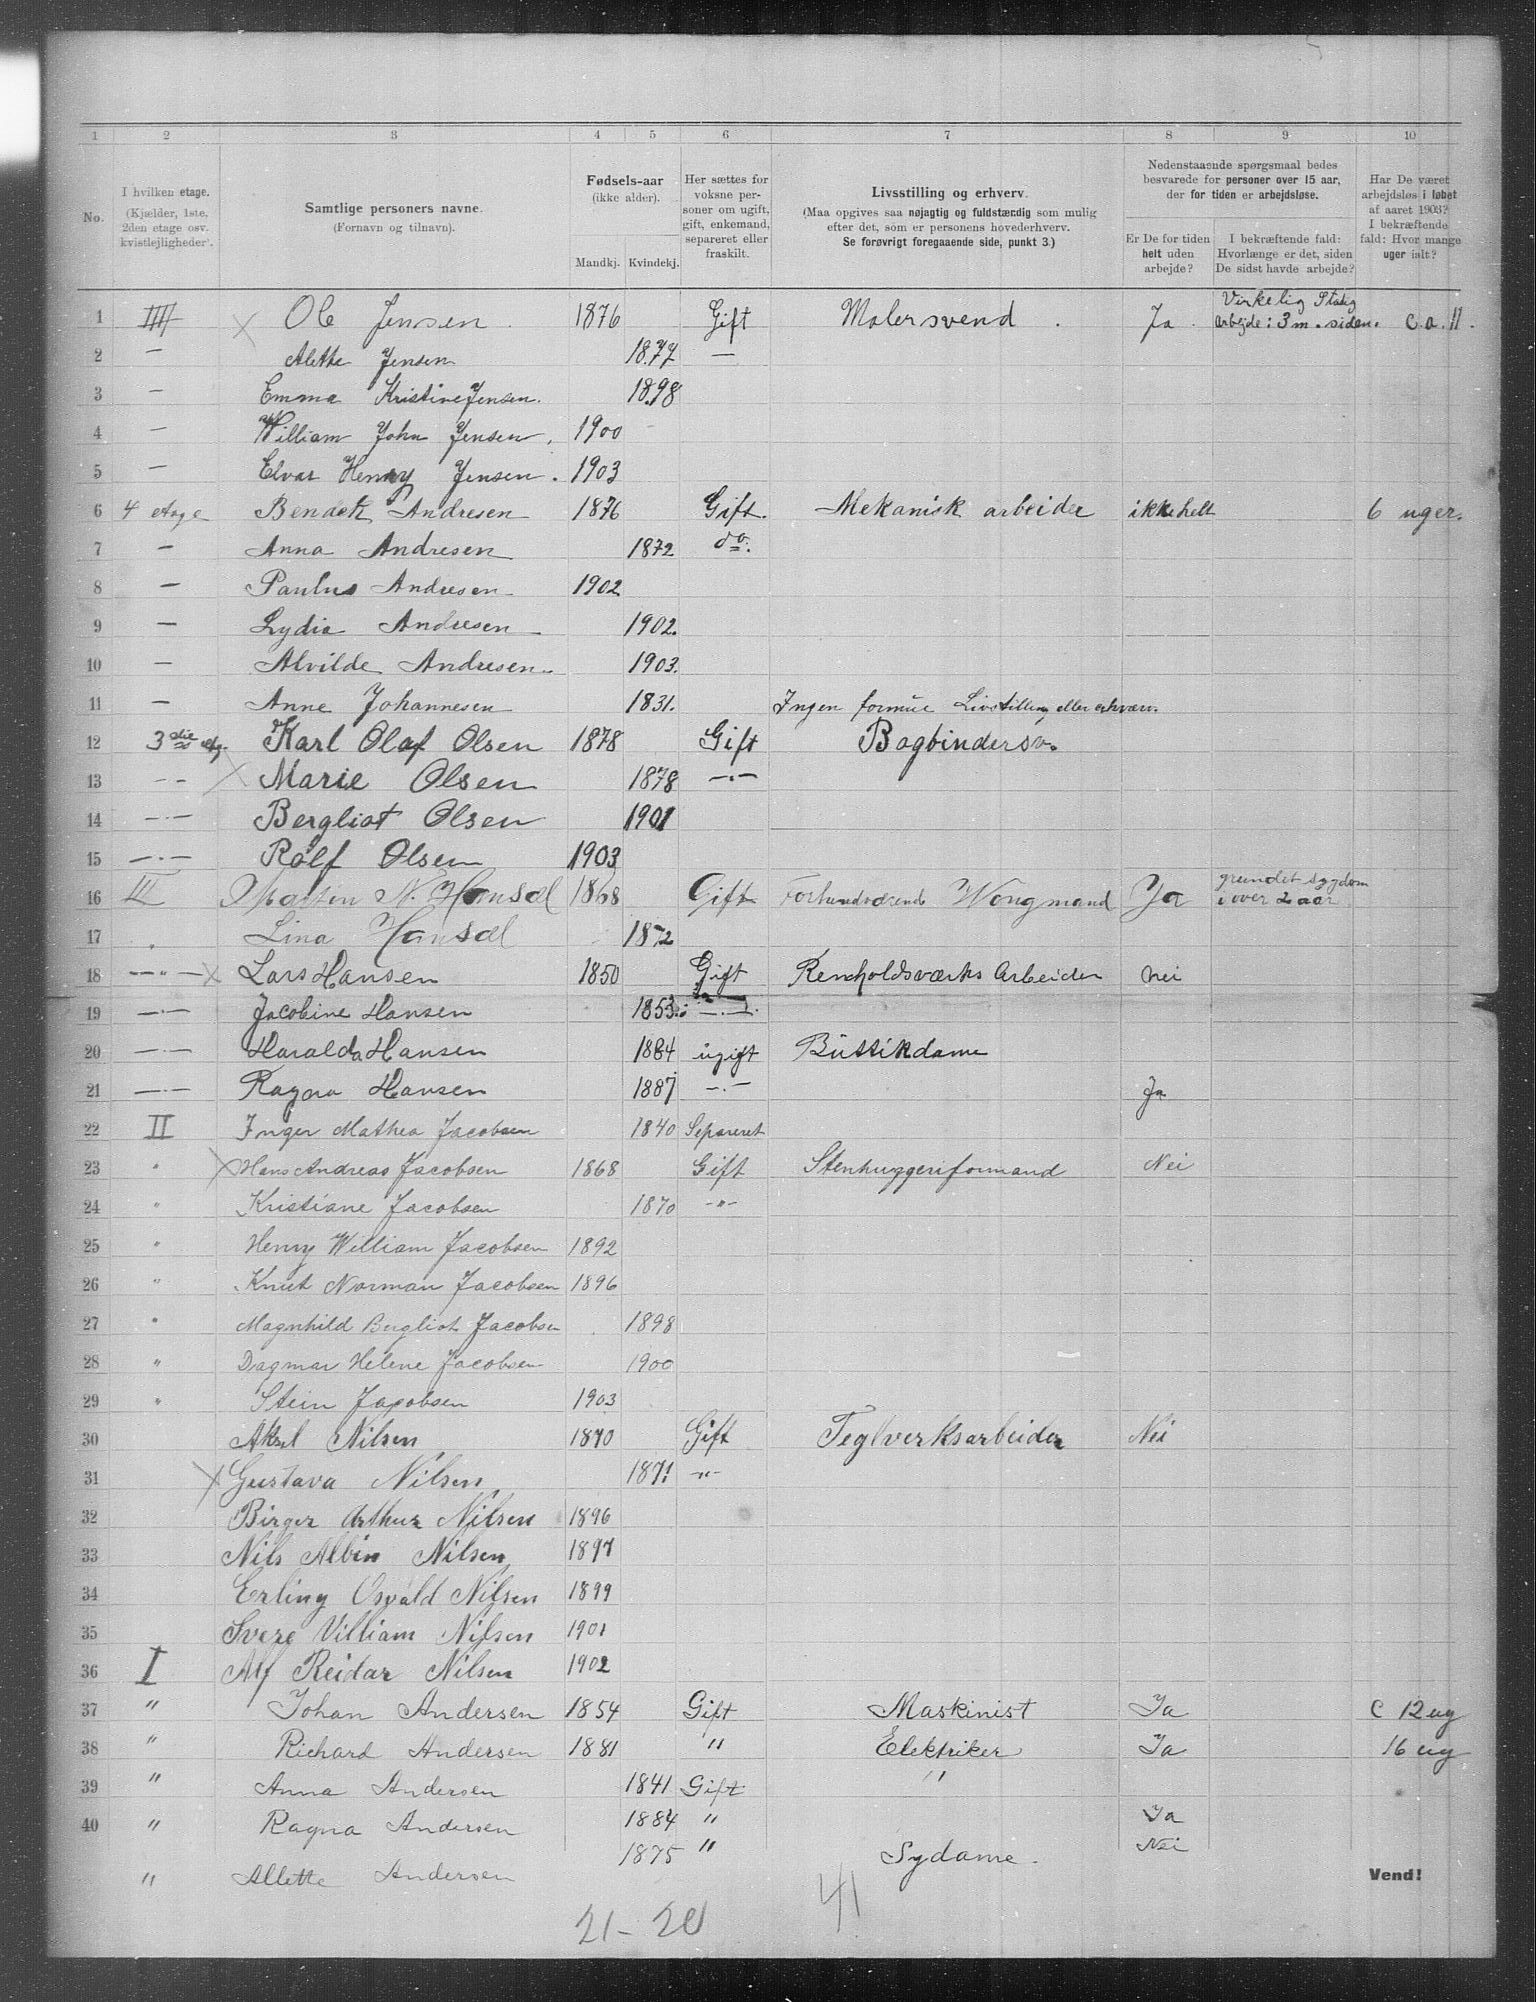 1 2 3 4 5 6 7 8 9 10
No.
I hvilken etage.
(Kjælder, 1ste,
2den etage osv.
kvistlejligheder).
Samtlige personers navne.
(Fornavn og tilnavn).
Fødsels-aar
(ikke alder).
Mandkj. Kvindekj.
Her sættes for
voksne per-
soner om ugift,
gift, enkemand,
separeret eller
fraskilt.
Livsstilling og erhverv.
(Maa opgives saa nøjagtig og fuldstændig som mulig
efter det, som er personens hovederhverv.
Se forøvrigt foregaaende side, punkt 3.)
Nedenstaaende spørgsmaal bedes
besvarede for personer over 15 aar,
der for tiden er arbejdsløse.
Er De for tiden
helt uden
arbejde?
I bekræftende fald:
Hvorlænge er det, siden
De sidst havde arbejde?
Har De været
arbejdsløs i løbet
af aaret 1903?
I bekræftende
fald: Hvor mange
uger ialt?
1 IIII Ole Jensen 1876 Gift Malersvend. Ja. Virkelig Stadig arbejde: 3 m. siden. c.a. 11.
2 — Alette Jensen 1877 —
3 — Emma Kristine Jensen. 1898
4 — William John Jensen. 1900
5 — Elvar Henry Jensen. 1903
6 4 etage Andresen 1876 Gift. Mekanisk arbeider ikke helt 6 uger.
7 — Anna Andresen 1872 do.
8 — Paulus Andresen 1902
9 — Lydia Andresen 1902.
10 — Alvilde Andresen 1903.
11 — Anne Johannesen 1831. Ingen formue Livstilling eller erhværv.
12 3die etg. Karl Olaf Olsen 1878 Gift Bogbindersv.
13 -- Marie Olsen 1878 —·—
14 —·— Bergliot Olsen 1901
15 —·— Rolf Olsen 1903
16 III N. Hansæl 1868 Gift Forhenværende Wongmand Ja grundet sygdom i over 2 aar
17 " Lina Hansæl 1872
18 —"— Lars Hansen 1850 Gift Renholdsværks Arbeider nei
19 —·— Jacobine Hansen 1853 —·—
20 —·— Haralda Hansen 1884 ugift Buttikdame
21 —·— Ragna Hansen 1887 —·— Ja
22 II Inger Mathea Jacobsen 1840 Separeret
23 " Hans Andreas Jacobsen 1868 Gift Stenhuggeriformand Nei
24 " Kristiane Jacobsen 1870 -"-
25 " Henry William Jacobsen 1892
26 " Knut Norman Jacobsen 1896
27 " Magnhild Bergliot Jacobsen 1898
28 " Dagmar Helene Jacobsen 1900
29 " Stein Jacobsen 1903
30 Aksel Nilsen 1870 Gift Teglverksarbeider Nei
31 Gustava Nilsen 1871 -"-
32 Birger Arthur Nilsen 1896
33 Nils Albin Nilsen 1897
34 Erling Osvald Nilsen 1899
35 Svere Villiam Nilsen 1901
36 I Alf Reidar Nilsen 1902
37 " Johan Andersen 1854 Gift Maskinist Ja c 12 ug
38 " Richard Andersen 1881 " Elektriker Ja 16 ug
39 " Anna Andersen 1841 Gift "
40 " Ragna Andersen 1884 " Ja
" Allette Andersen 1875 " Sydame. Nei
Vend!
21-20 41